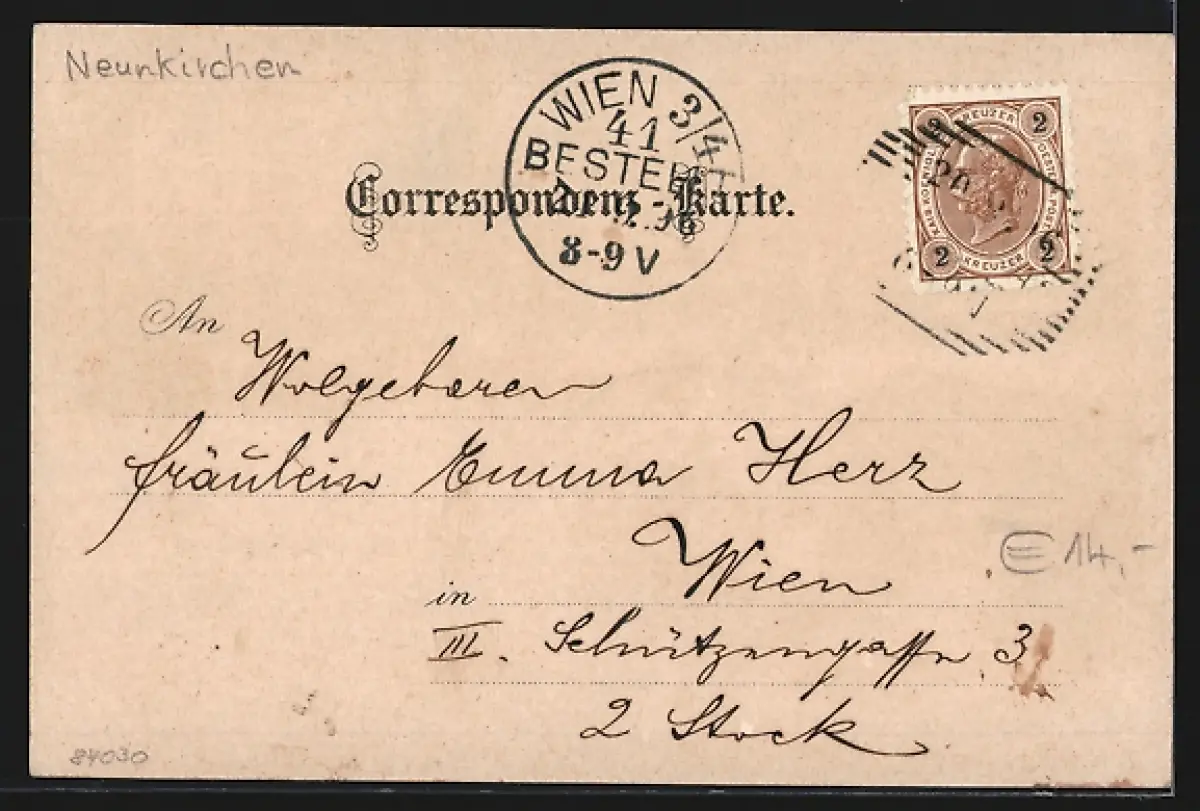 Neunkirchen
WIEN 3/4
41
BESTELLT
8-9 V
Correspondenz-Karte.
2 KREUZER 2
2 KREUZER 2
20
An Wolgeboren
fräulein Emma Herz
in Wien
III. Schützengasse 3
2 Stock
€ 14,-
84030